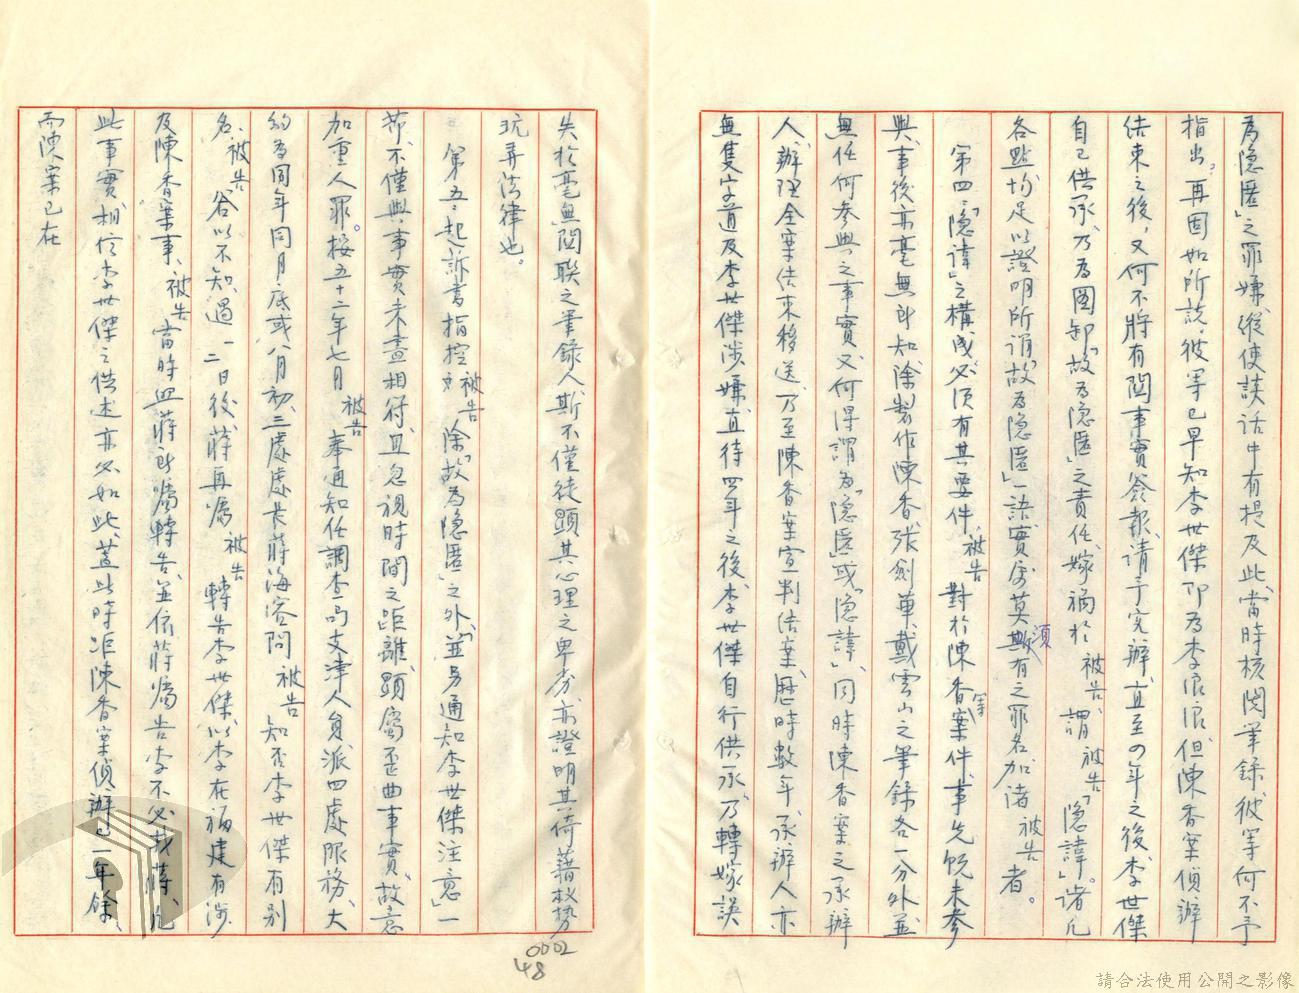 為隱匿」之罪嫌、縱使談話中有提及此、當時核閱筆錄、彼等何不予
指出。再因如所說、彼等已早知李世傑即為李浪浪、但陳香案偵辦
結束之後、又何不將有關事實簽報、請予究辦、直至四年之後、李世傑
自己供承、乃為圖卸「故為隱匿」之責任、嫁禍於被告、謂被告「隱諱」。諸凡
各點均足以證明所謂「故為隱匿」一語實屬莫須有之罪名加諸被告者。
第四、「隱諱」之構成、必須有其要件、被告對於陳香等案件、事先既未參
與、事後亦毫無所知、除製作陳香、張劍華、戴雲山之筆錄各一分外、並
無任何參與之事實、又何得謂為「隱匿」或「隱諱」、同時陳香案之承辦
人、辦理全案結束移送、乃至陳香案宣判結案、歷時數年、承辦人亦
無隻字道及李世傑涉嫌、直待四年之後、李世傑自行供承、乃轉嫁誤
失於毫無關聯之筆錄人、斯不僅徒顯其心理之卑劣、亦證明其倚藉權勢
玩弄法律也。
第五、起訴書指控被告除「故為隱匿」之外、「並另通知李世傑注意」一
節、不僅與事實未盡相符、且忽視時間之距離、顯屬歪曲事實、故意
加重人罪。按五十二年七月被告奉通知任調查局支津人員、派四處服務、大
約為同年同月底或八月初、三處處長蔣海容問被告知否李世傑有別
名、被告答以不知、過一二日後、蔣再囑被告轉告李世傑、以李在福建有涉
及陳香案事、被告當時照蔣所囑轉告、並依蔣囑告李不必找蔣、凡
此事實、相信李世傑之供述亦必如此、蓋此時距陳香案偵辦已一年餘、
而陳案已在
0002
48
請合法使用公開之影像